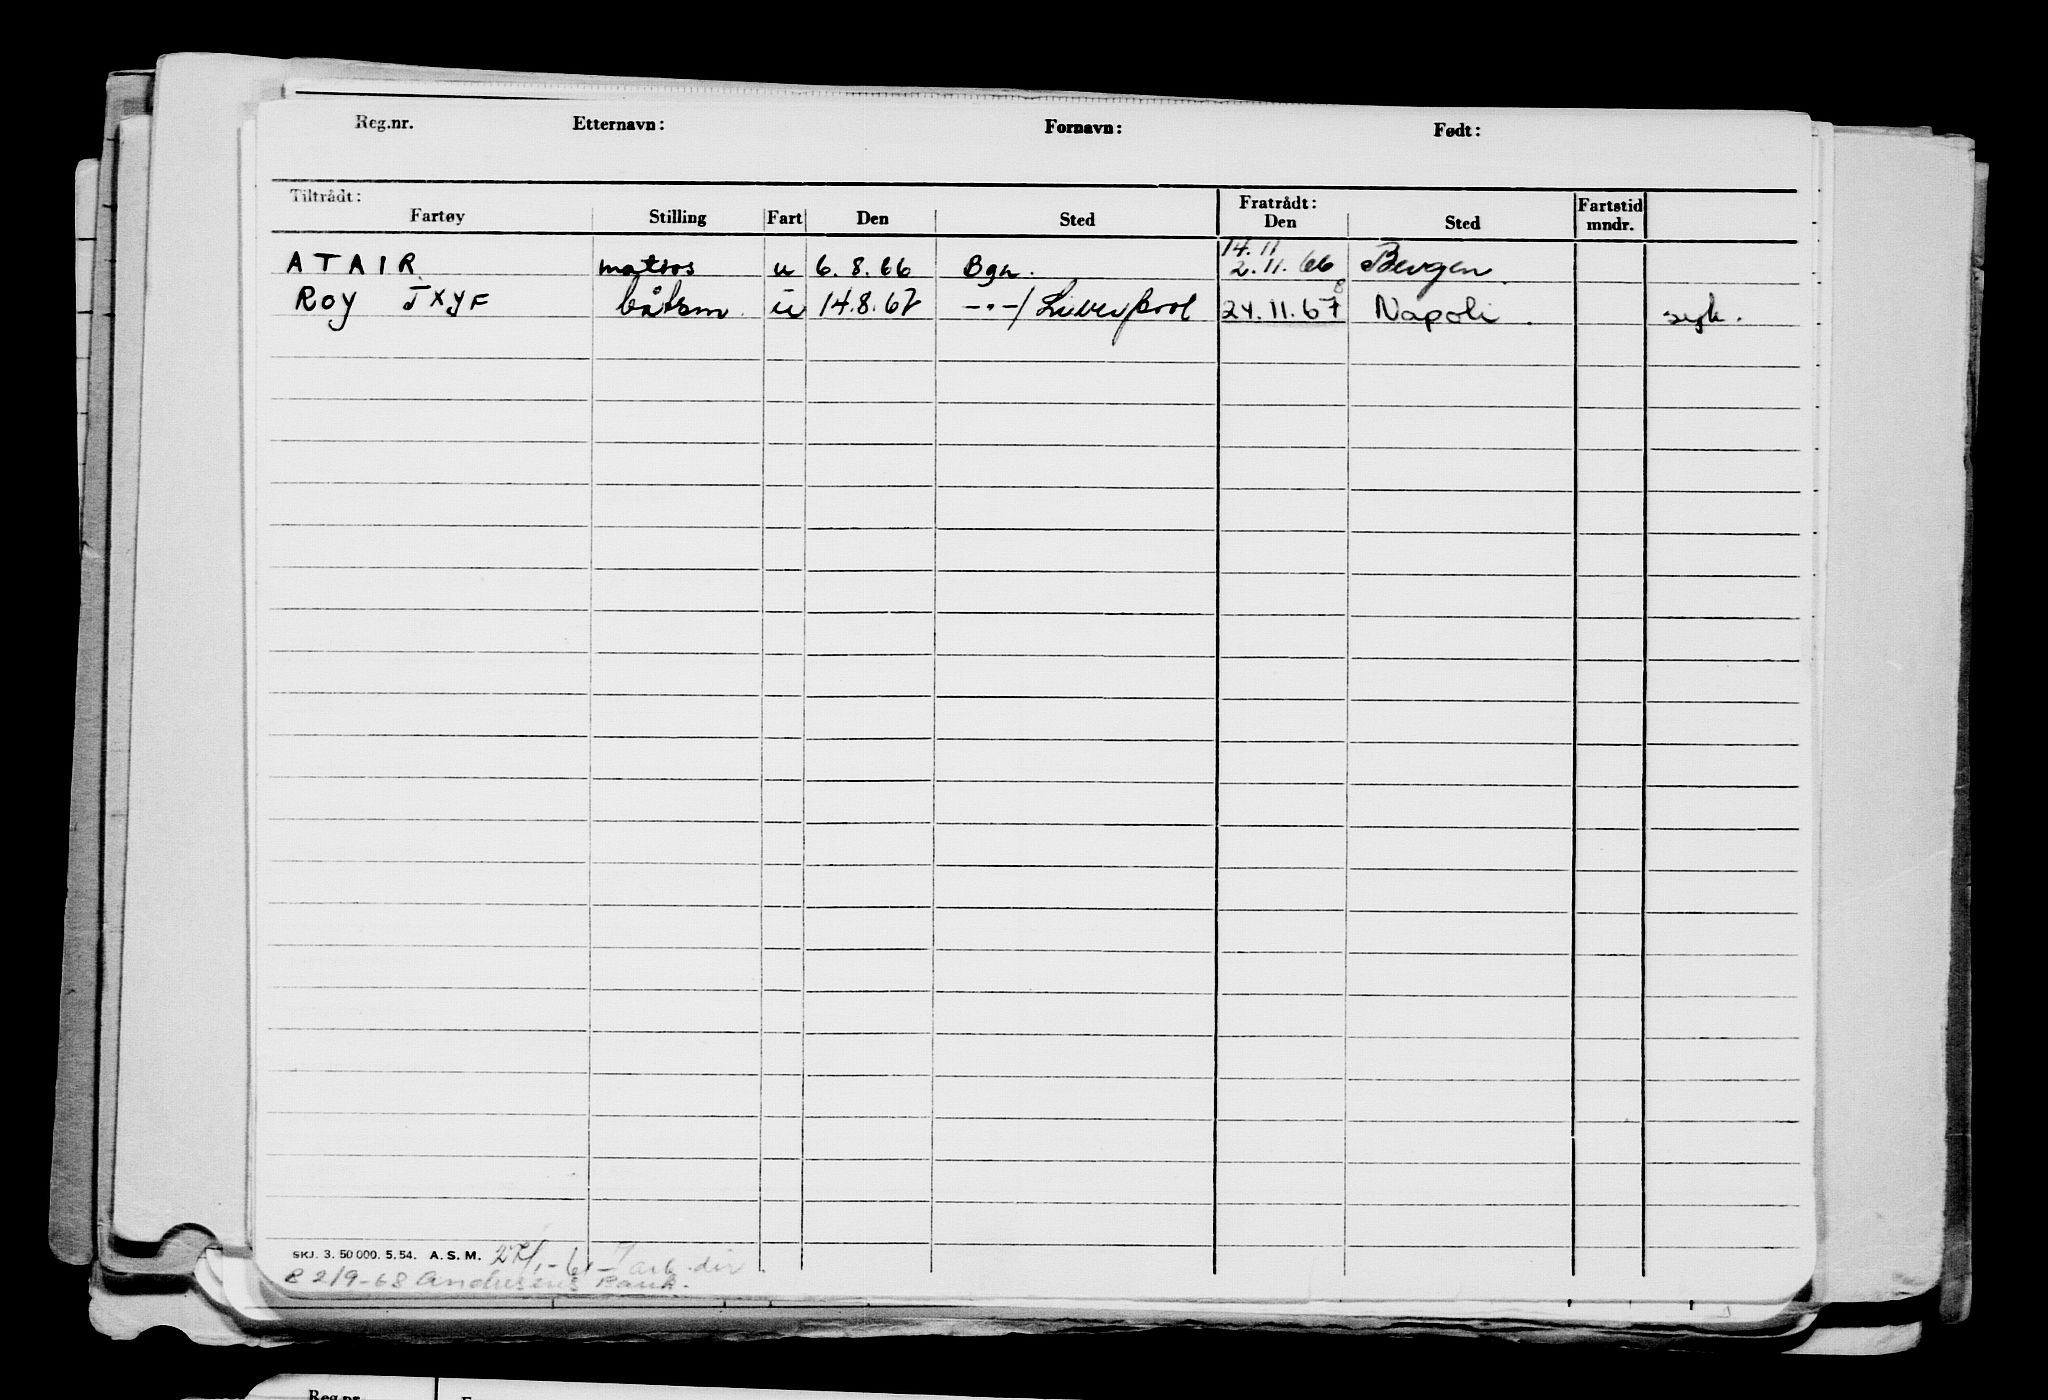 Reg.nr. Etternavn: Fornavn: Født:
Tiltrådt: Fratrådt: Fartstid
Fartøy Stilling Fart Den Sted Den Sted mndr.
14.11
ATAIR matros u 6.8.66 Bgn. 2.11.66 Bergen
8
ROY JXYF båtsm. u 14.8.67 -"-/Liverpool 24.11.67 Napoli. syk.
SKJ. 3. 50 000. 5. 54. A. S. M. arb.dir.
2/9-68 Andresens Bank.
Reg.nr.